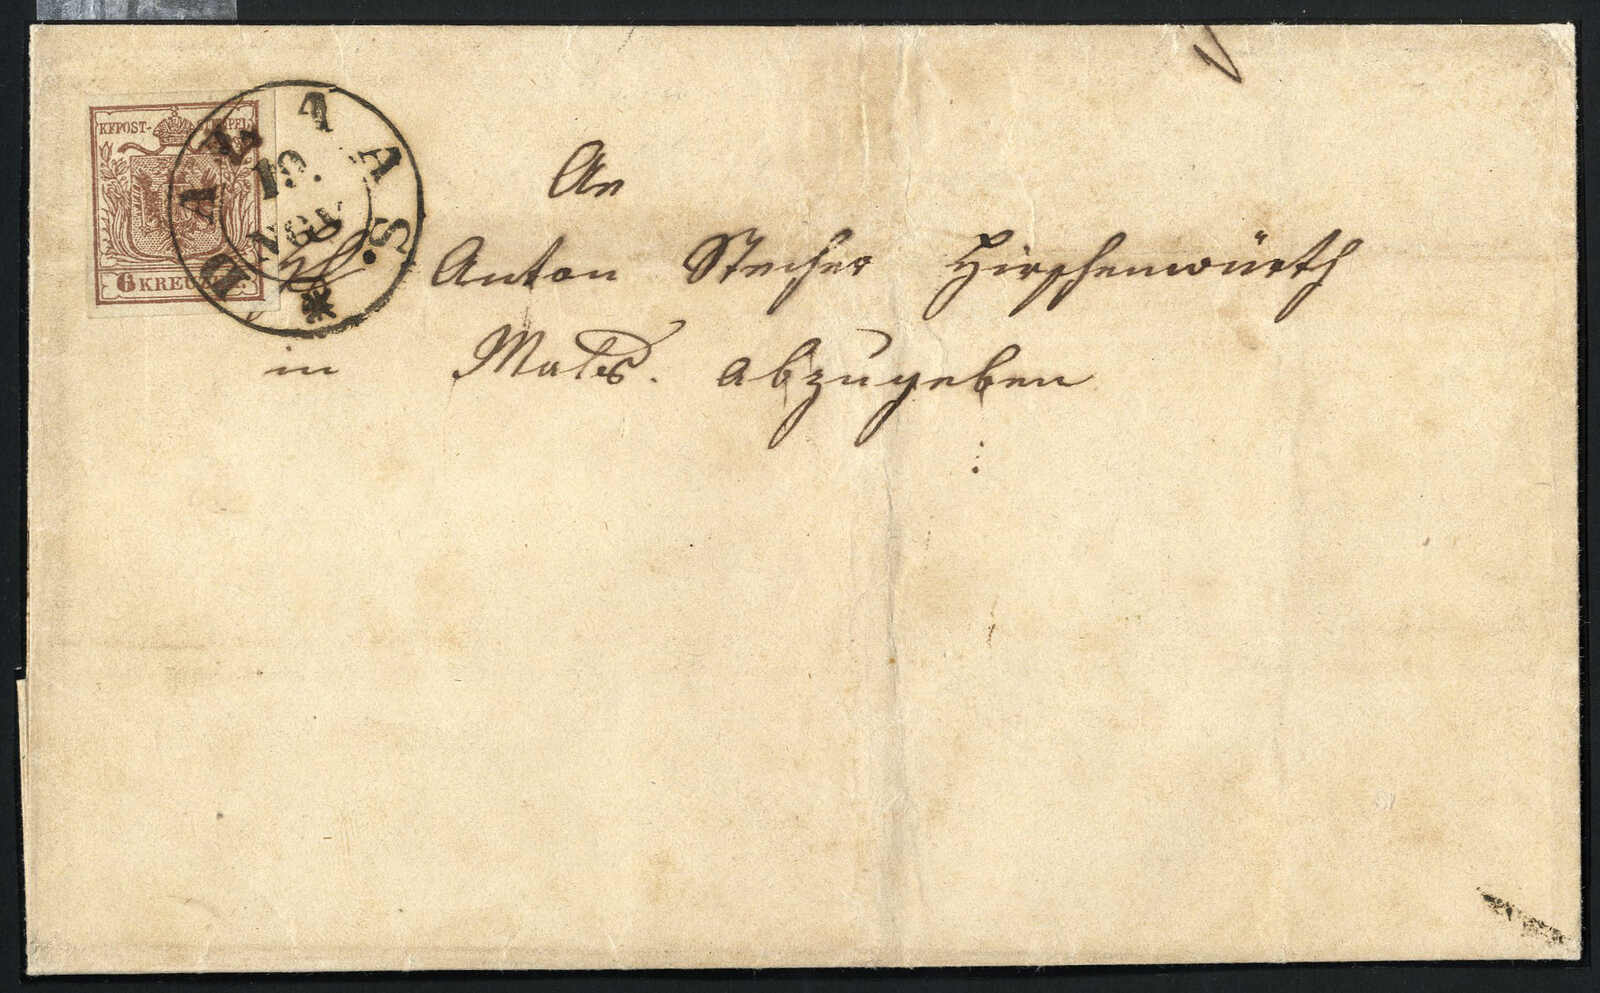 KKPOST-STEMPEL
6 KREUZER.
DALAAS.
19.
An
Anton Stecher Hirschenwürth
in Mals. abzugeben